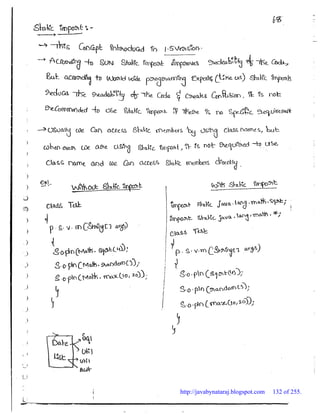 68
Static import :-
→ This Concept Introduced in 1.5 version.
→ According to SUN Static Import Improves Readability of the Code,
But according to World wide programming Experts (Like us) Static Import
Reduces the Readability of the Code & Creates Confusion, It is not
Recommended to use Static Import If There is no Specific requirement
→ Usually we Can access Static members by using Class names, but
when ever we are using Static Import, it is not Required to use
Class name and we Can access Static members directly.
Ex:-
Without Static Import
class Test
{
p. s. v. m (String[] args)
{
S.o.pln(Math. sqrt(4));
S.o.pln(Math. random());
S.o.pln(Math. max(10, 20));
}
}
With Static Import
import static java.lang.math.sqrt;
import static java.lang.math.*;
class Test
{
p. s. v. m (String[] args)
{
S.o.pln(sqrt(4));
S.o.pln(random());
S.o.pln(max(10,20));
}
}
Date
List
sql
util
util
awt
http://javabynataraj.blogspot.com 132 of 255.